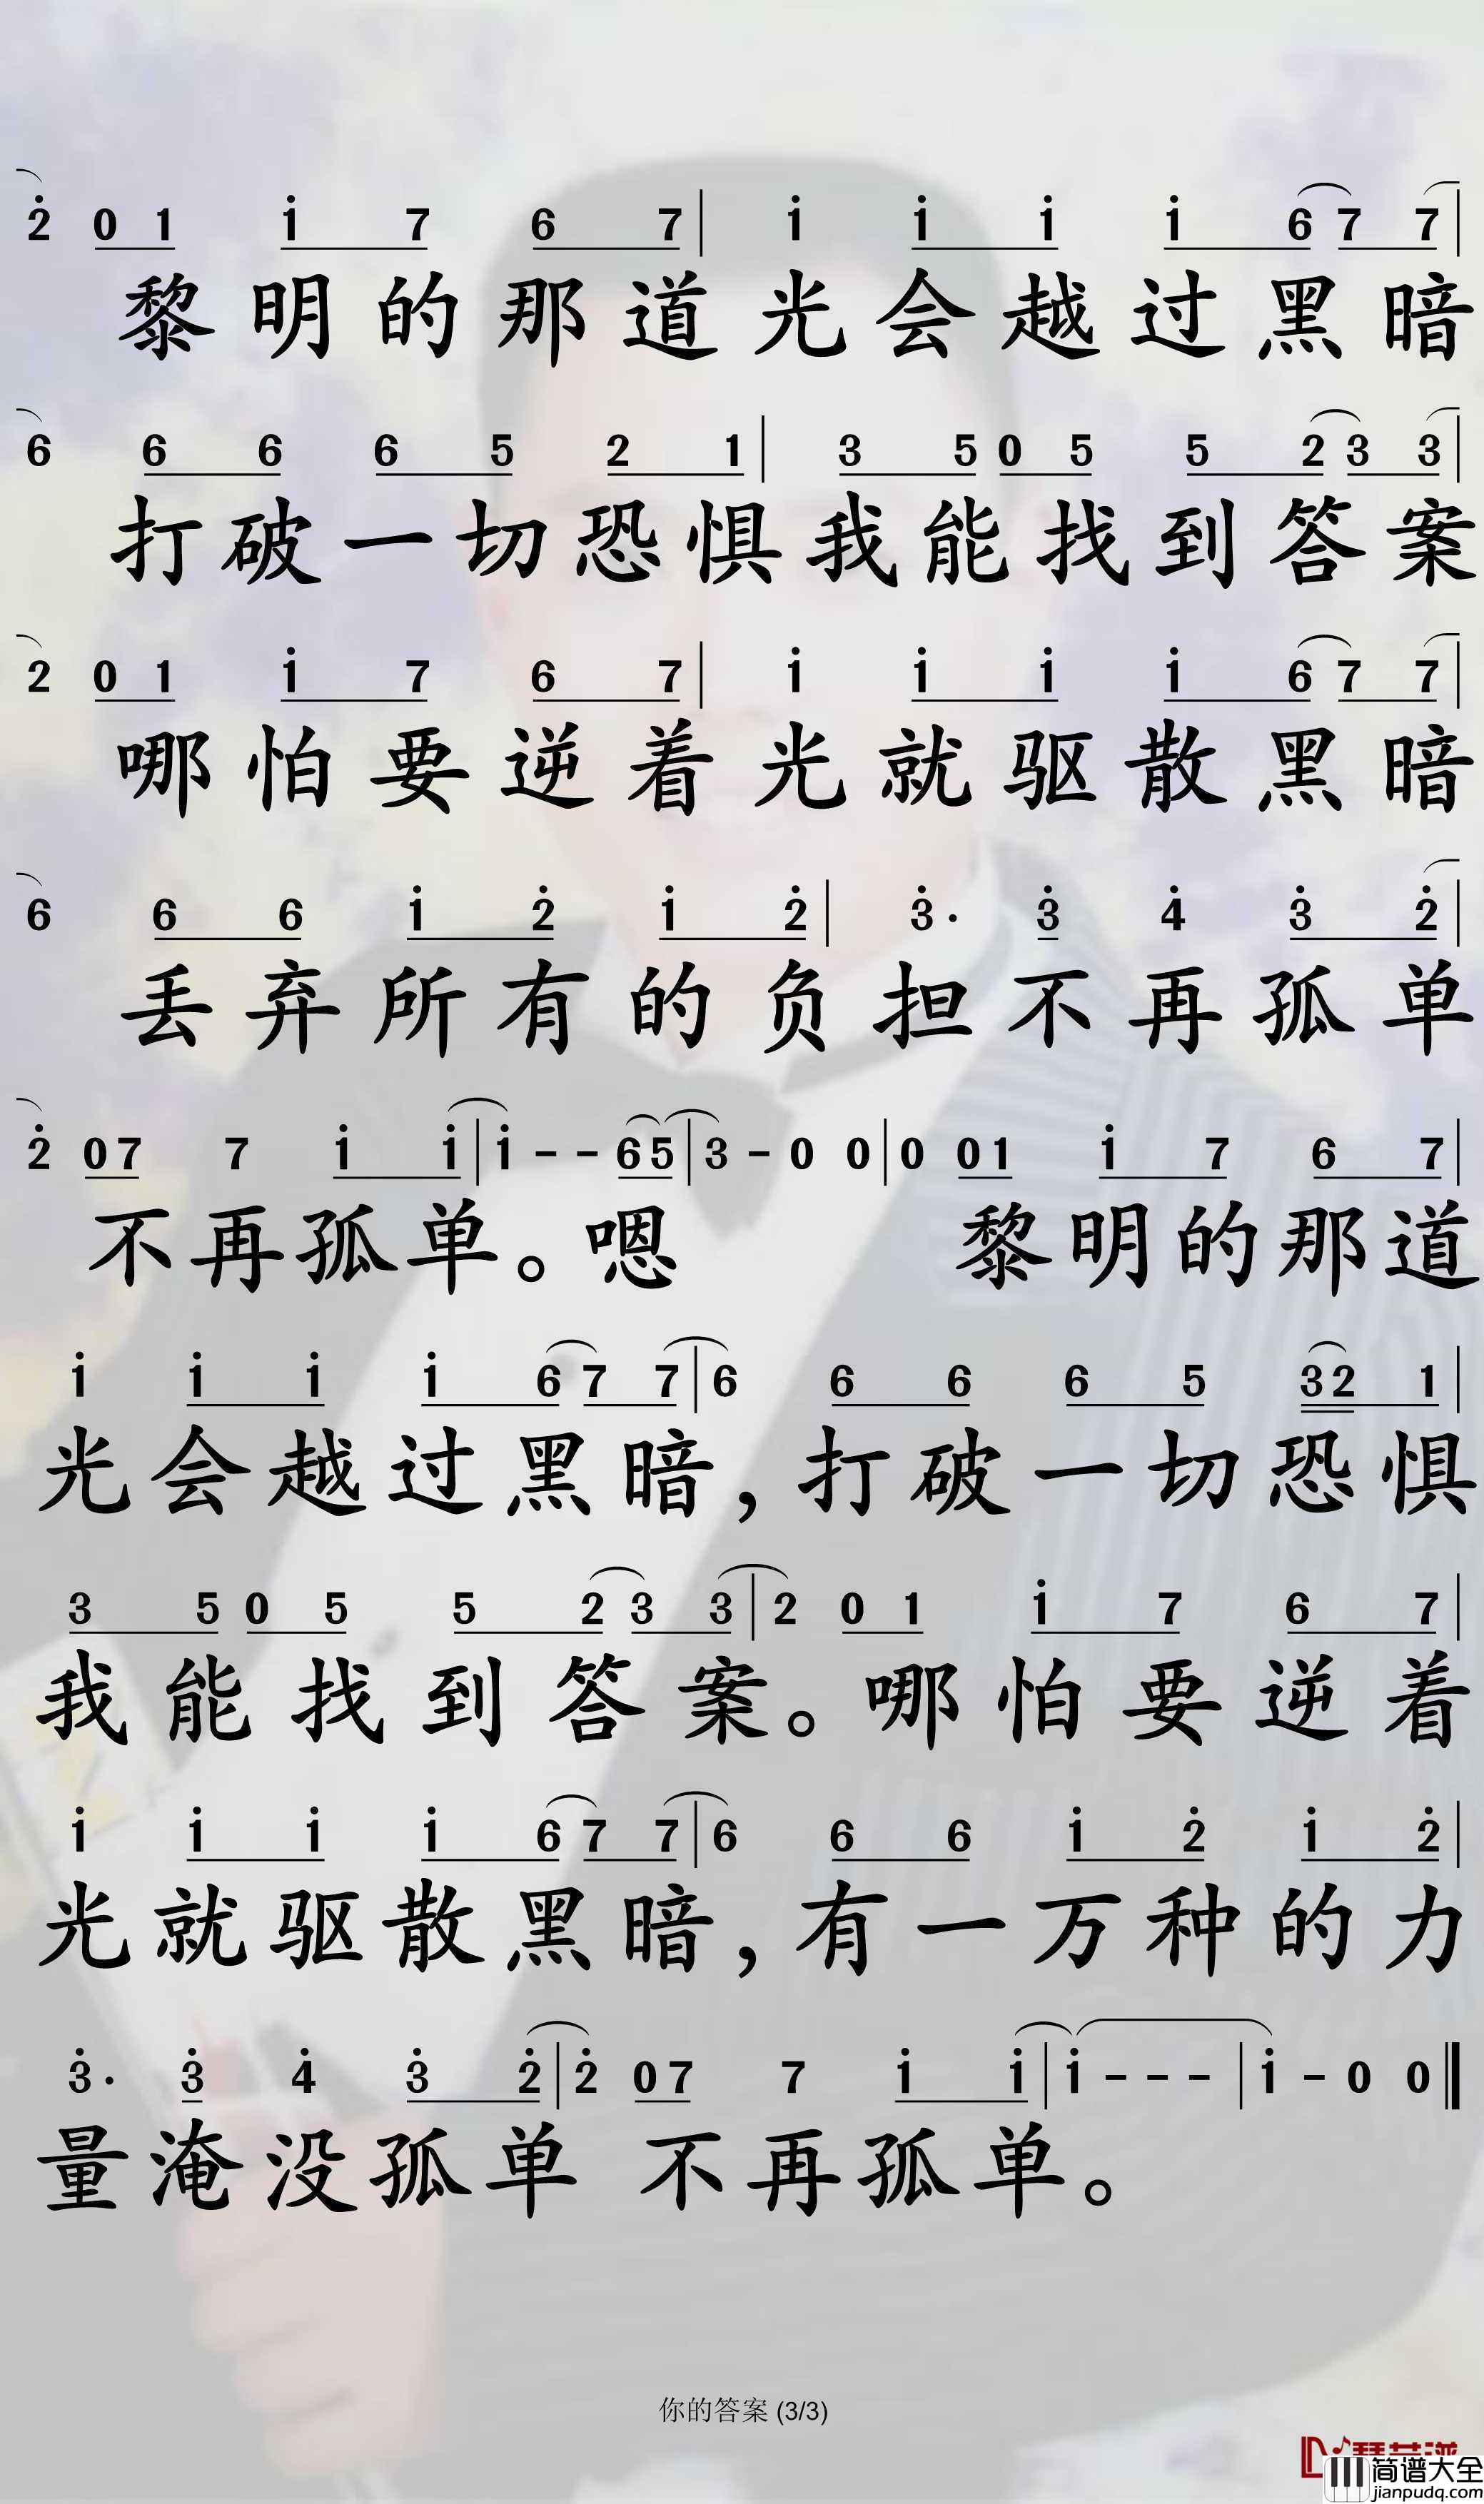 2̇ 0 1 1̇ 7 6 7 | 1̇ 1̇ 1̇ 1̇ 6 7 7 |
黎明的那道光会越过黑暗
6 6 6 6 5 2 1 | 3 5 0 5 5 2 3 3 |
打破一切恐惧我能找到答案
2 0 1 1̇ 7 6 7 | 1̇ 1̇ 1̇ 1̇ 6 7 7 |
哪怕要逆着光就驱散黑暗
6 6 6 1̇ 2̇ 1̇ 2̇ | 3̇· 3̇ 4̇ 3̇ 2̇ |
丢弃所有的负担不再孤单
2̇ 0 7 7 1̇ 1̇ | 1̇ - - 6 5 | 3 - 0 0 | 0 0 1 1̇ 7 6 7 |
不再孤单。嗯 黎明的那道
1̇ 1̇ 1̇ 1̇ 6 7 7 | 6 6 6 6 5 3 2 1 |
光会越过黑暗,打破一切恐惧
3 5 0 5 5 2 3 3 | 2 0 1 1̇ 7 6 7 |
我能找到答案。哪怕要逆着
1̇ 1̇ 1̇ 1̇ 6 7 7 | 6 6 6 1̇ 2̇ 1̇ 2̇ |
光就驱散黑暗,有一万种的力
3̇· 3̇ 4̇ 3̇ 2̇ | 2̇ 0 7 7 1̇ 1̇ | 1̇ - - - | 1̇ - 0 0
量淹没孤单 不再孤单。
你的答案 (3/3)
简谱大全
jianpudq.com